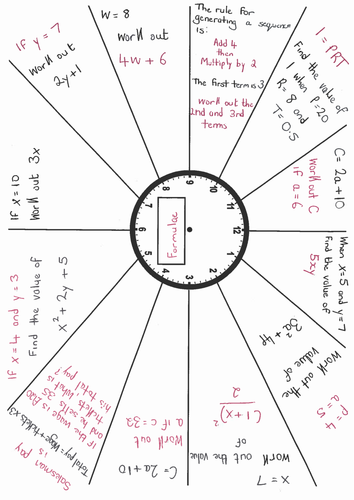 The rule for
generating a sequence
is:
Add 4
then
Multiply by 2
The first term is 3
Work out the
2nd and 3rd
terms
I = PRT
Find the value of
I when P=20
R = 8 and
T = 0.5
C = 2a + 10
Work out C
if a = 6
When x = 5 and y = 7
Find the value of
5xy
Work out the
value of
3a² + 4p
p = 4
a = 5
x = 7
Work out the value
of
(1+x)²
2
C = 2a + 10
Work out
a if c = 32
Salesman pay
is
Total pay = Wage + tickets x 3
if the wage is £200
and he sells 35
tickets what is
his total pay?
If x = 4 and y = 3
Find the value of
x² + 2y + 5
If x = 10
Work out 3x
If y = 7
Work out
2y + 1
W = 8
work out
4w + 6
Formulae
1
2
3
4
5
6
7
8
9
10
11
12